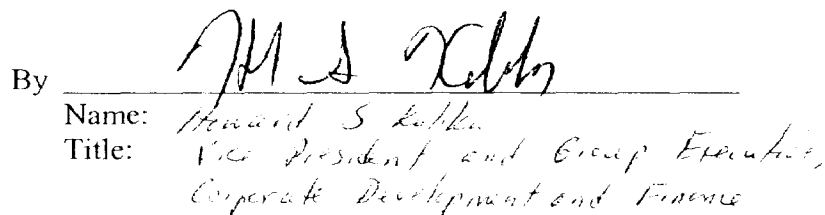 By
Name: Howard S
Title: Vice President and Group Executive,
Corporate Development and Finance